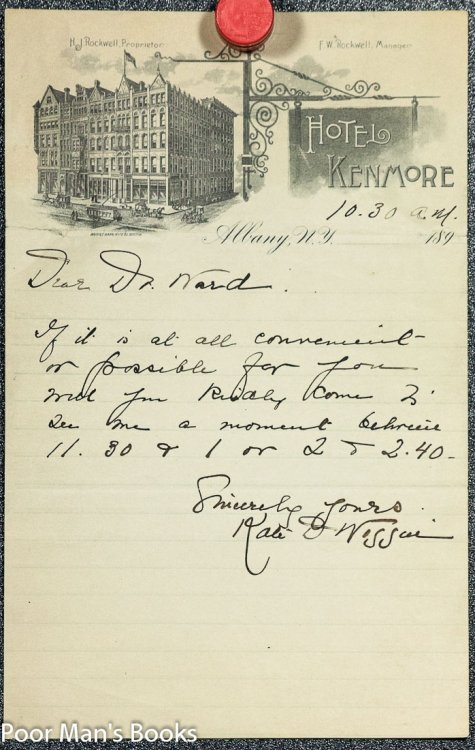 H.J. Rockwell, Proprietor.
F.W. Rockwell, Manager.
HOTEL
KENMORE
10.30 a.m.
Albany, N.Y. 189
Dear Dr. Ward.
If it is at all convenient
or possible for you
will you kindly come to
see me a moment between
11.30 & 1 or 2 & 2.40-
Sincerely yours
Kate D Wiggin
Poor Man's Books